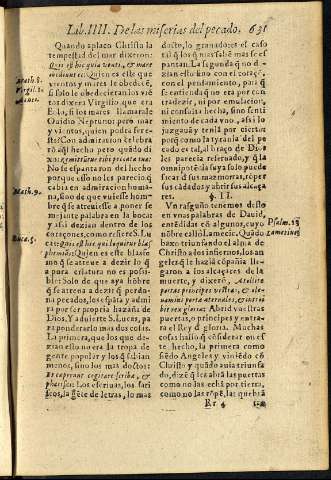 Lib. IIII. De las miserias del pecado. 631
Quando aplacò Christo la
tempestad del mar dizeron:
Quis est hic quia venti, & mare
obediunt ei: Quien es este que
vientos, y mares le obedecē,
si solo le obedecieran los viē
tos dixera Virgilio que era
Eolo, si los mares llamarale
Ouidio Neptuno: pero mar
y vientos, quien podra ser es-
te? Con admiracion celebrà
rō aql hecho pero quādo di
xo: Remittuntur tibi peccata tua:
No se espantaron del hecho
porque esso no les parecio q̄
cabia en admiracion huma-
na, sino de que vuiesse hom-
bre q̄ se atreuiesse a poner se
mejante palabra en la boca:
y assi dezian dentro de los
coraçones, como refiere S. Lu
cas: Quis est hic qui loquitur blas
phemias: Quien es este blasfe
mo q̄ se atreue a dezir lo q̄
a pura criatura no es possi-
ble: Solo de que aya hōbre
q̄ se atreua a dezir q̄ perdo-
na pecados, los espāta y admi
ra por ser propria hazaña de
Dios. Y aduierte S. Lucas, pa
ra ponderarlo mas dos cosas.
La primera, que los que de-
zian esto no era la tropa de
gente popular y los q̄ sabian
menos, sino los mas doctos:
Et cœperunt cogitare scribæ, &
pharisæi: Los escriuas, los fari
seos, la gēte de letras, lo mas
docto, lo granado: es el caso
tal q̄ los q̄ mas saben mas se es
pantan. La segunda q̄ no di-
zian esto sino con el coraçō,
con el pensamiento, para q̄
se entendiera que no era por
ruydo, ni por emulacion, ni
por inuidia secreta, sino sent
timiento de cada vno, assi lo
juzgauā y tenia por cierto:
porq̄ como la tyrania del pe
cado es tal, al braço de Dios
les parecia reseruado, y q̄ la
omnipotēcia suya solo puede
sacar d̄ sus mazmorras, rōper
sus cādados y abrir sus alcaça
res.
§. II.
Vn rasguño tenemos desto
en vnas palabras de Dauid,
entēdidas en alguno, cuyo
nombre callò Lamecio. Quādo
baxo triunfando el alma de
Christo a los infiernos, los an
geles q̄ le hazian cōpañia lle
garon a los alcaçares de la
muerte, y dizerō, Atollite
portas principes vestras, & ele-
uamini portæ æternales, & introi
bit rex gloriæ: Abrid vuestras
puertas, o principes, y entra-
ra el Rey d̄ gloria. Muchas
cosas hallo q̄ cōsiderar en es
te hecho, la primera como
siēdo Angeles y viniēdo cō
Christo y quādo auia triunfa
do, dizē q̄ les abrā las puertas
como no las echā por tierra,
como no las rōpē, las quebrā
Rr 4
Math. 8.
Math. 9.
Luca. 5.
Psalm. 23